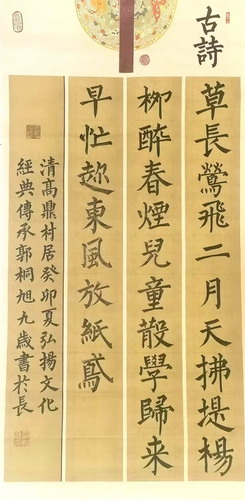 古詩
草長鶯飛二月天拂堤楊
柳醉春煙兒童散學歸来
早忙趂東風放紙鳶
清高鼎村居癸卯夏弘揚文化
經典傳承郭桐旭九歲書於長